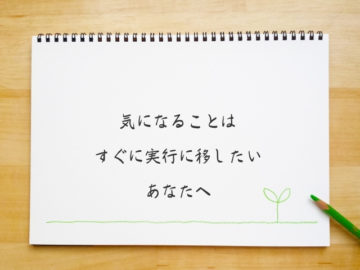 気になることは
すぐに実行に移したい
あなたへ